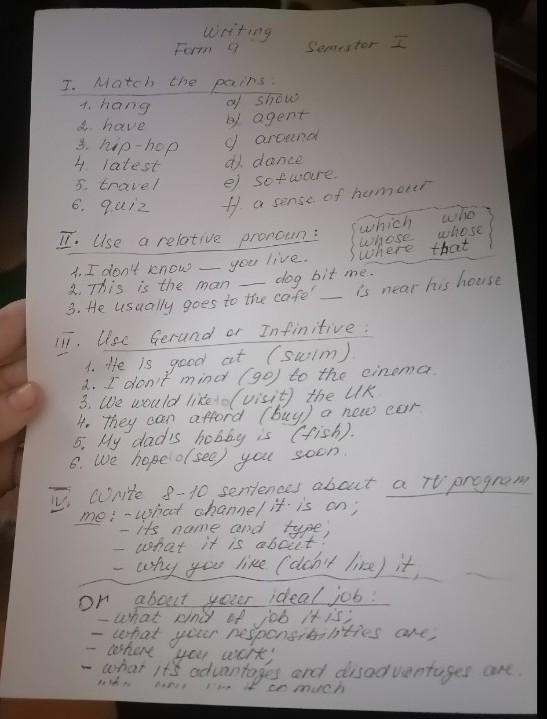 Writing
Form 9 Semester I
I. Match the pairs:
1. hang a) show
2. have b) agent
3. hip-hop c) around
4. latest d) dance
5. travel e) sofware.
6. quiz f) a sense of humour
II. Use a relative pronoun: which who
whose whose
where that
1. I don't know __ you live.
2. This is the man __ dog bit me.
3. He usually goes to the café __ is near his house
III. Use Gerund or Infinitive:
1. He is good at (swim).
2. I don't mind (go) to the cinema.
3. We would like to (visit) the UK
4. They can afford (buy) a new car.
5. My dad's hobby is (fish).
6. We hope to (see) you soon.
IV. Write 8-10 sentences about a TV program
me: - what channel it is on;
- its name and type;
- what it is about;
- why you like (don't like) it,
or about your ideal job:
- what kind of job it is;
- what your responsibilities are;
- where you work;
- what it's advantages and disadvantages are.
it so much